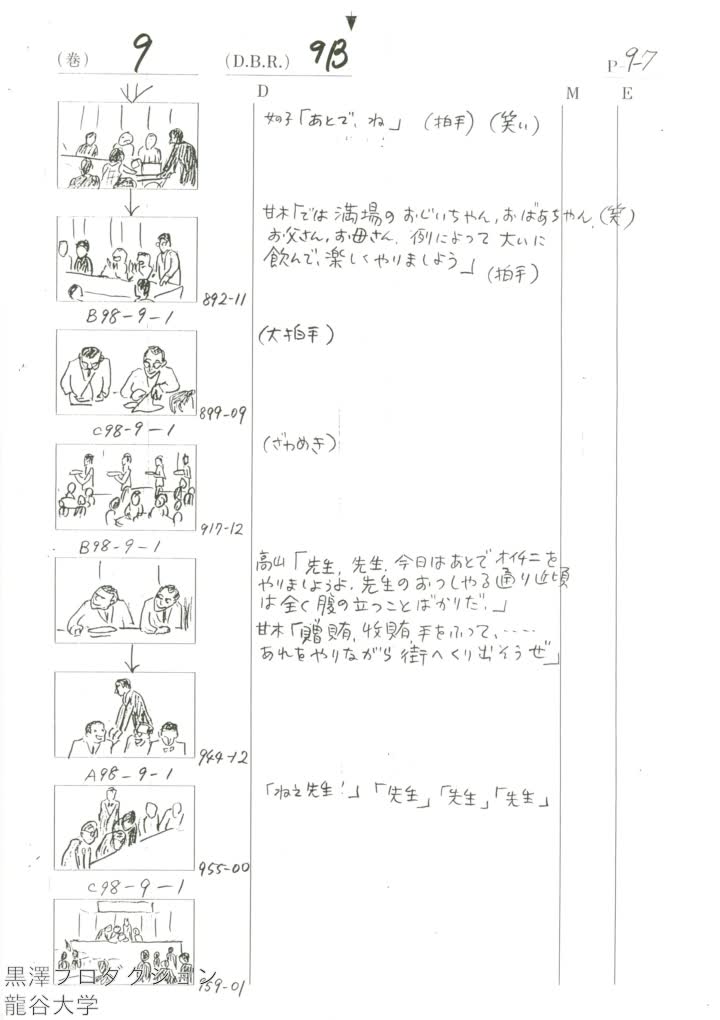 (巻) 9 (D.B.R.) 9B P-9-7
D M E
女の子「あとで、ね」 (拍手) (笑い)
甘木「では満場のおじいちゃん,おばあちゃん, (笑)
お父さん,お母さん, 例によって大いに
飲んで、楽しくやりましよう」 (拍手)
892-11
B98-9-1
(大拍手)
899-09
C98-9-1
(ざわめき)
917-12
B98-9-1
高山「先生, 先生, 今日はあとでオイチニを
やりましようよ. 先生のおっしやる通り近頃
は全く腹の立つことばかりだ.」
甘木「贈賄,收賄,手をふって、‥‥‥
あれをやりながら街へくり出そうぜ」
944-12
A98-9-1
「ねえ先生!」「先生」「先生」「先生」
955-00
C98-9-1
959-01
黒澤プロダクション
龍谷大学